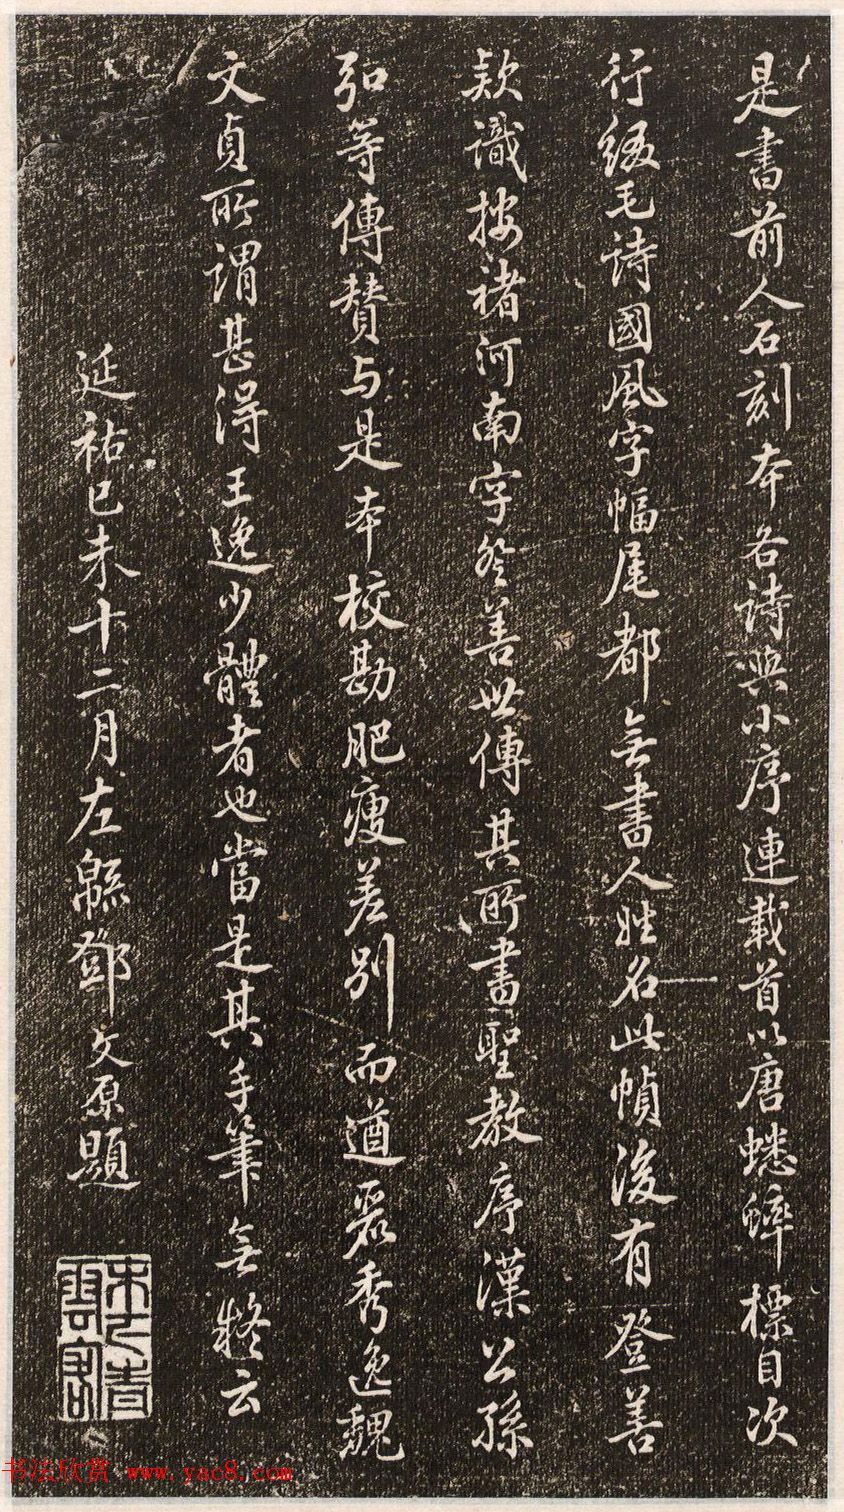 是書前人石刻本各詩與小序連載首以唐蟋蟀標目次
行綴毛詩國風字幅尾都無書人姓名此幀後有登善
款識按褚河南字登善世傳其所書聖教序漢公孫
弘等傳贊与是本校勘肥瘦差別而遒麗秀逸魏
文貞所謂甚得王逸少體者也當是其手筆無疑云
延祐已未十二月左緜鄧文原題
書法欣赏 www.yac8.com